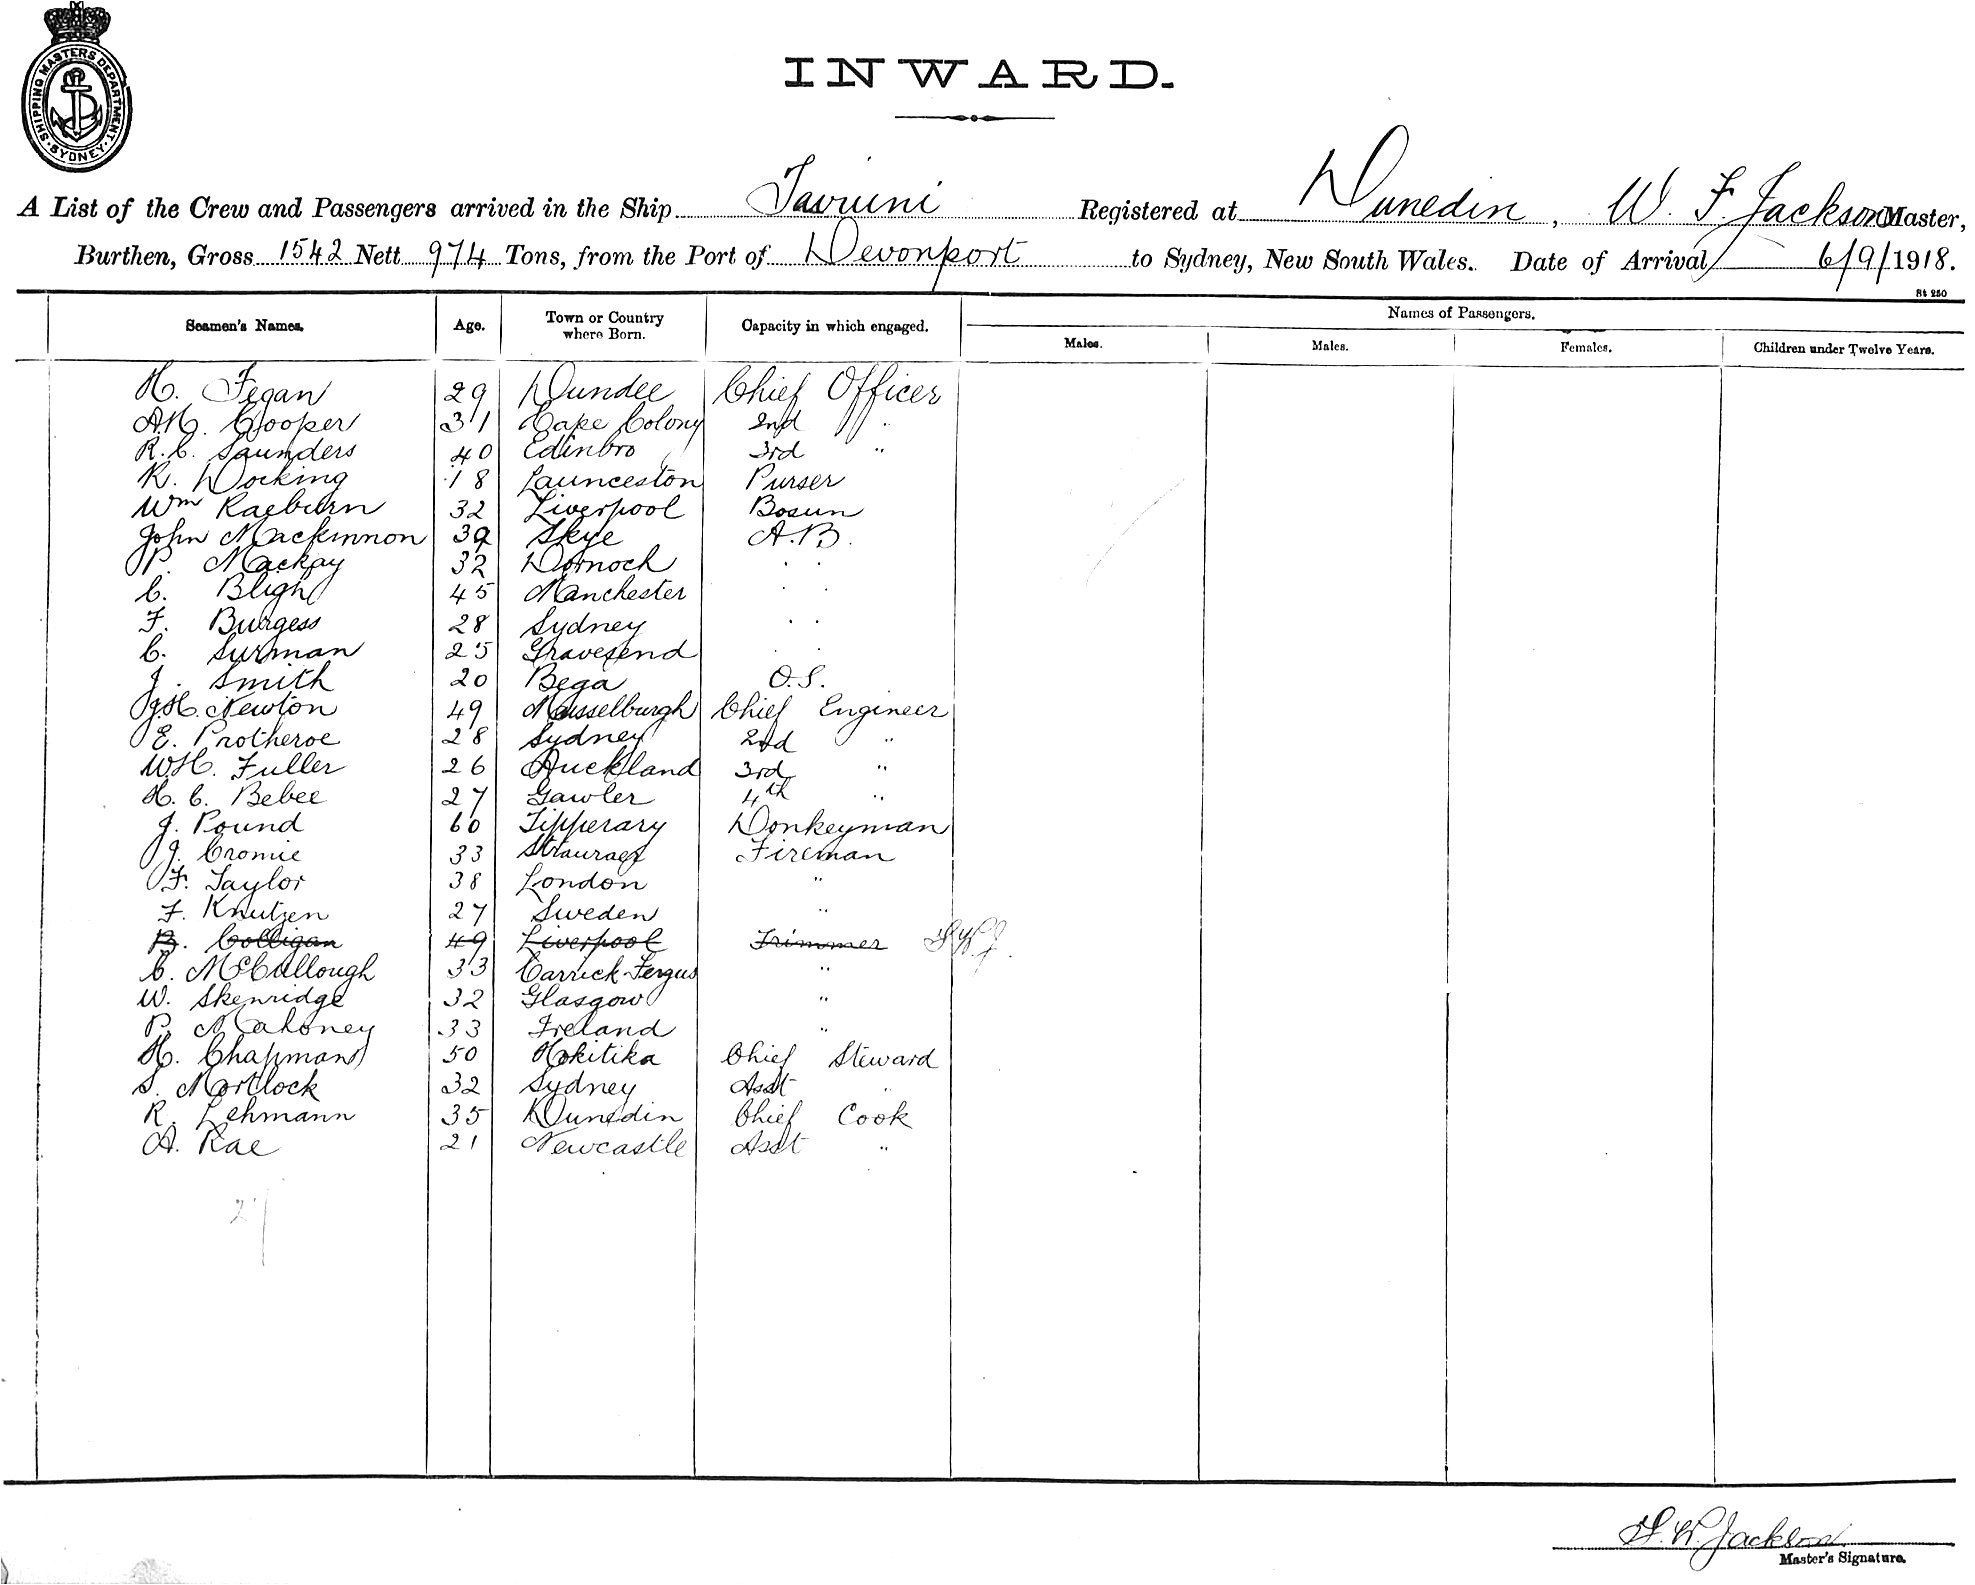 SHIPPING MASTERS DEPARTMENT · SYDNEY ·
INWARD.
A List of the Crew and Passengers arrived in the Ship Taviuni Registered at Dunedin, W. F. Jackson Master,
Burthen, Gross 1542 Nett 974 Tons, from the Port of Devonport to Sydney, New South Wales. Date of Arrival 6/9/1918.
St 250
Seamen's Names. Age. Town or Country where Born. Capacity in which engaged. Names of Passengers.
Males. Males. Females. Children under Twelve Years.
H. Fegan 29 Dundee Chief Officer
A.H. Cooper 31 Cape Colony 2nd "
R. C. Saunders 40 Edinbro 3rd "
R. Docking 18 Launceston Purser
Wm Raeburn 32 Liverpool Bosun
John Mackinnon 39 Skye A.B.
P. Mackay 32 Dornoch " "
C. Bligh 45 Manchester " "
F. Burgess 28 Sydney " "
C. Surman 25 Gravesend " "
J. Smith 20 Bega O.S.
J.H. Newton 49 Musselburgh Chief Engineer
E. Protheroe 28 Sydney 2nd "
W.H. Fuller 26 Auckland 3rd "
H. C. Bebee 27 Gawler 4th "
J. Pound 60 Tipperary Donkeyman
J. Cromie 33 Stranraer Fireman
F. Taylor 38 London "
F. Knutzen 27 Sweden "
B. Colligan 49 Liverpool Trimmer F.W.J.
C. McCullough 33 Carrick-Fergus "
W. Skenridge 32 Glasgow "
P. Mahoney 33 Ireland "
H. Chapman 50 Hokitika Chief Steward
S. Mortlock 32 Sydney Asst "
R. Lehmann 35 Dunedin Chief Cook
A. Rae 21 Newcastle Asst "
27
F. W. Jackson
Master's Signature.